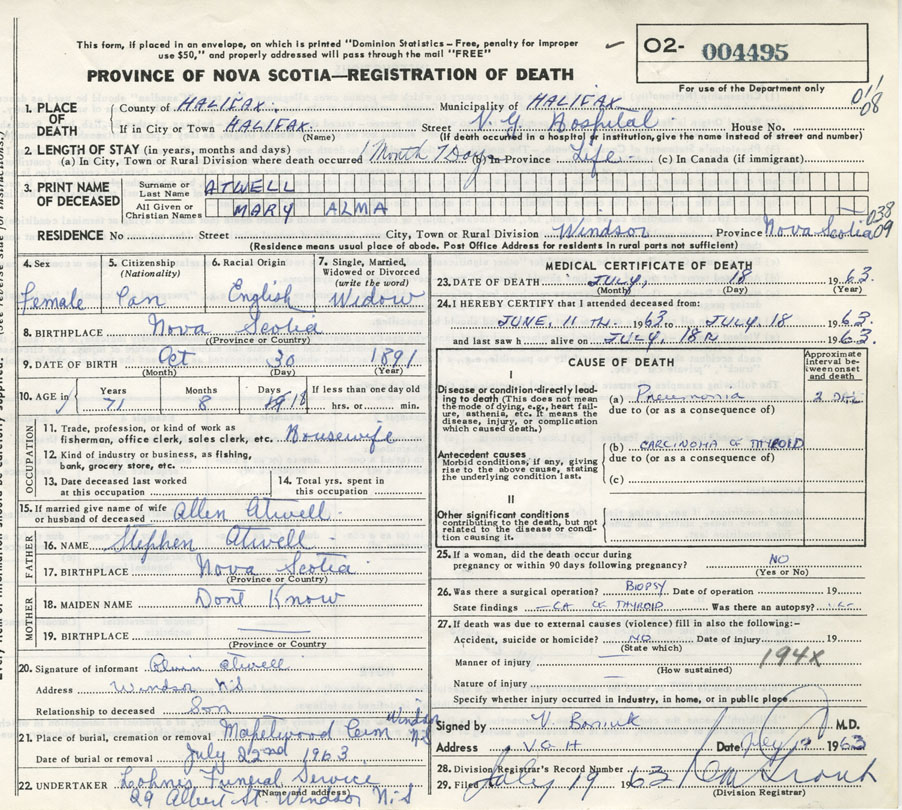 This form, if placed in an envelope, on which is printed "Dominion Statistics – Free, penalty for improper
use $50," and properly addressed will pass through the mail "FREE"
O2- 004495
For use of the Department only
PROVINCE OF NOVA SCOTIA—REGISTRATION OF DEATH
1. PLACE OF DEATH
County of HALIFAX. Municipality of HALIFAX
If in City or Town HALIFAX. Street V.G Hospital House No.
(Name) (If death occurred in a hospital or institution, give the name instead of street and number)
2. LENGTH OF STAY (in years, months and days)
(a) In City, Town or Rural Division where death occurred 1 Month 7 Day (b) In Province Life - (c) In Canada (if immigrant)
3. PRINT NAME OF DECEASED
Surname or Last Name ATWELL
All Given or Christian Names MARY ALMA
038
09
RESIDENCE No Street City, Town or Rural Division Windsor Province Nova Scotia
(Residence means usual place of abode. Post Office Address for residents in rural parts not sufficient)
4. Sex
Female
5. Citizenship (Nationality)
Can
6. Racial Origin
English
7. Single, Married, Widowed or Divorced (write the word)
Widow
8. BIRTHPLACE Nova Scotia
(Province or Country)
9. DATE OF BIRTH Oct 30 1891
(Month) (Day) (Year)
10. AGE in
Years Months Days If less than one day old
71 8 18 hrs. or min.
OCCUPATION
11. Trade, profession, or kind of work as
fisherman, office clerk, sales clerk, etc. Housewife
12. Kind of industry or business, as fishing,
bank, grocery store, etc.
13. Date deceased last worked at this occupation
14. Total yrs. spent in this occupation
15. If married give name of wife or husband of deceased Allen Atwell
FATHER
16. NAME Stephen Atwell
17. BIRTHPLACE Nova Scotia
(Province or Country)
MOTHER
18. MAIDEN NAME Dont Know
19. BIRTHPLACE
(Province or Country)
20. Signature of informant Atwell
Address Windsor N.S
Relationship to deceased Son
21. Place of burial, cremation or removal Mapelwood Cem Windsor N.S
Date of burial or removal July 22nd 1963
22. UNDERTAKER Funeral Service
(Name and address)
29 Albert St. Windsor N.S
MEDICAL CERTIFICATE OF DEATH
23. DATE OF DEATH JULY, 18 1963.
(Month) (Day) (Year)
24. I HEREBY CERTIFY that I attended deceased from:
JUNE. 11 TH. 1963 to JULY. 18 1963.
and last saw h alive on JULY. 18 1963.
CAUSE OF DEATH
Approximate interval between onset and death
I
Disease or condition directly leading to death (This does not mean
the mode of dying, e.g., heart failure, asthenia, etc. It means the
disease, injury, or complication which caused death.)
(a) Pneumonia
due to (or as a consequence of)
Antecedent causes
Morbid conditions, if any, giving
rise to the above cause, stating
the underlying condition last.
(b) CARCINOMA OF THYROID
due to (or as a consequence of)
(c)
II
Other significant conditions
contributing to the death, but not
related to the disease or condition causing it.
25. If a woman, did the death occur during
pregnancy or within 90 days following pregnancy? NO
(Yes or No)
26. Was there a surgical operation? BIOPSY Date of operation 19
State findings CA OF THYROID Was there an autopsy?
27. If death was due to external causes (violence) fill in also the following:–
Accident, suicide or homicide? NO Date of injury 19
(State which)
Manner of injury 194X
(How sustained)
Nature of injury
Specify whether injury occurred in industry, in home, or in public place
Signed by M.D.
Address V.G H Date July 1963
28. Division Registrar's Record Number
29. Filed July 19 1963
(Division Registrar)